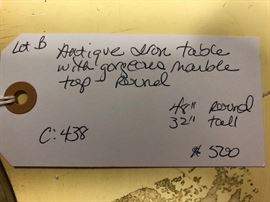 Lot B
Antique Iron table
with gorgeous marble
top - Round
48" Round
32" tall
C: 438
$ 500